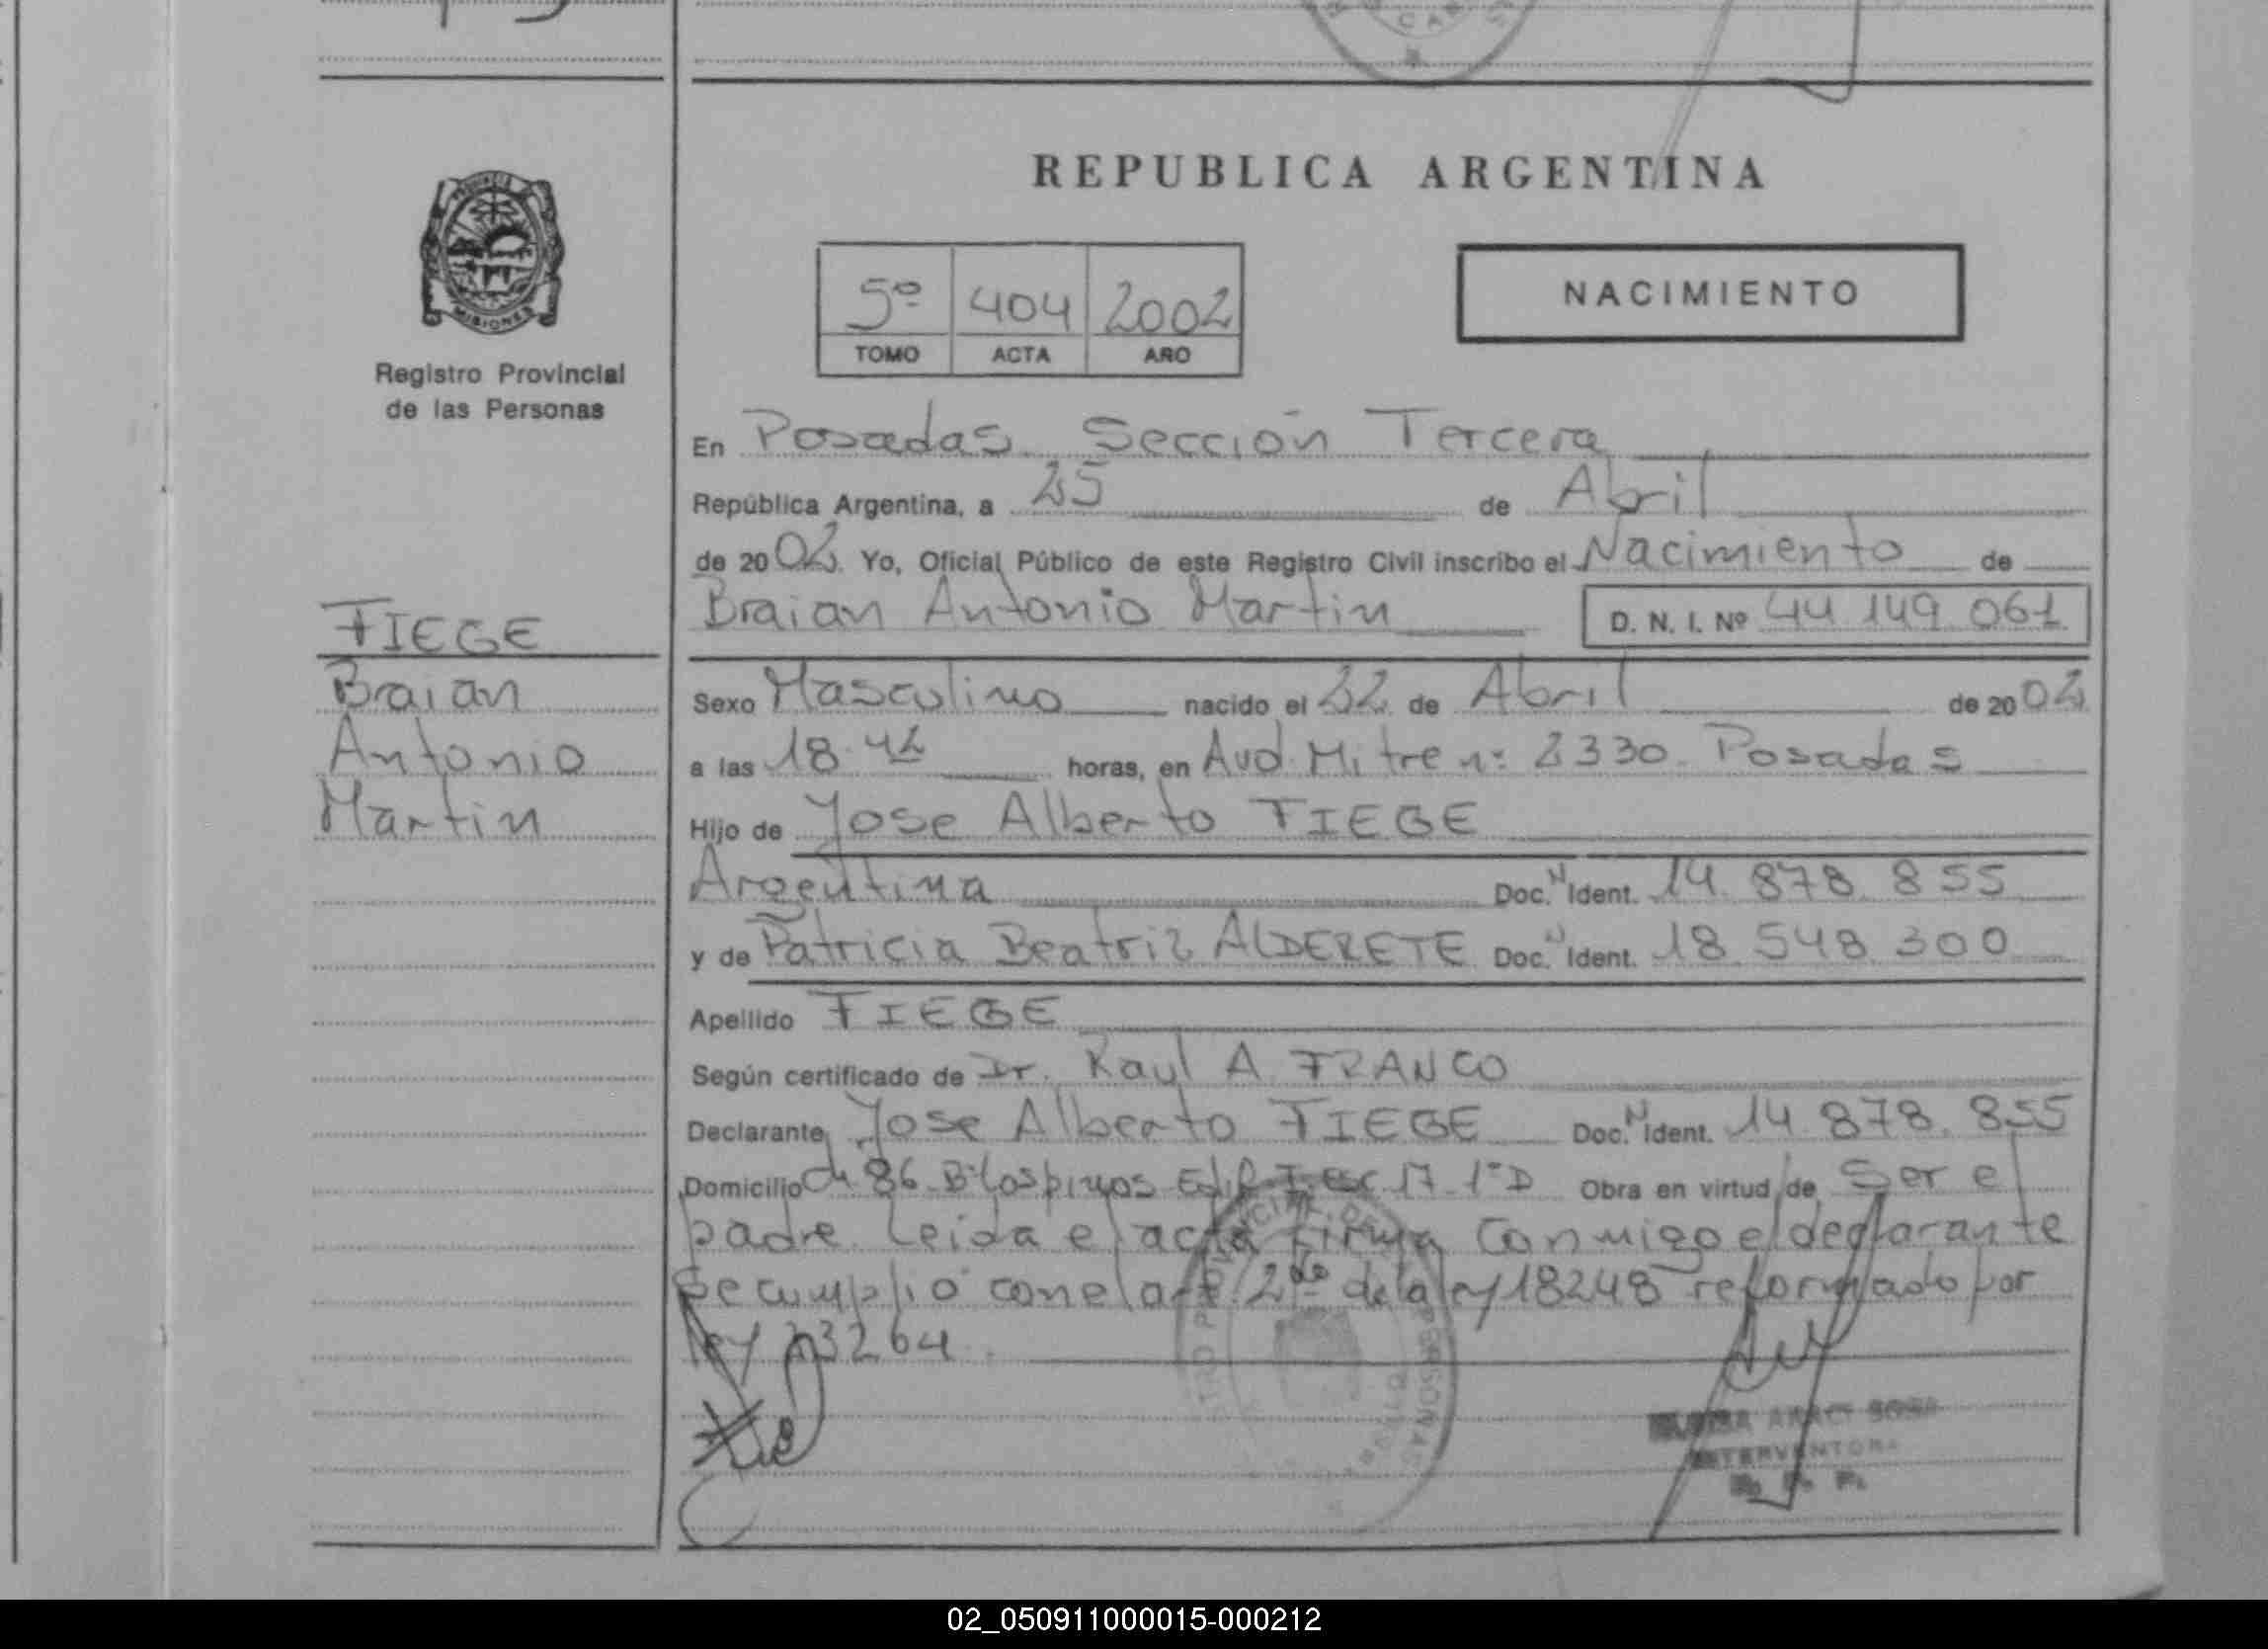 REPUBLICA ARGENTINA
5º 404 2002
TOMO ACTA AÑO
NACIMIENTO
MISIONES
Registro Provincial
de las Personas
FIEGE
Braian
Antonio
Martin
En Posadas Sección Tercera
República Argentina, a 25 de Abril
de 2002. Yo, Oficial Público de este Registro Civil inscribo el Nacimiento de
Braian Antonio Martin D. N. I. Nº 44 149 061
Sexo Masculino nacido el 22 de Abril de 2002
a las 18.42 horas, en Avd. Mitre nº 2330. Posadas
Hijo de Jose Alberto FIEGE
Argentina Doc. N Ident. 14. 878. 855
y de Patricia Beatriz ALDERETE Doc. N Ident. 18. 548. 300
Apellido FIEGE
Según certificado de Dr. Raul A. FRANCO
Declarante Jose Alberto FIEGE Doc. N Ident. 14. 878. 855
Domicilio Ch 86 Bº los pinos Edif. I Esc 17 1º D Obra en virtud de Ser el
padre. Leida el acta firma conmigo el declarante
Se cumplió con el art. 2do de la ley 18248 reformado por
ley 23264.
ARACI SOSA
INTERVENTORA
R. P. P.
02_050911000015-000212